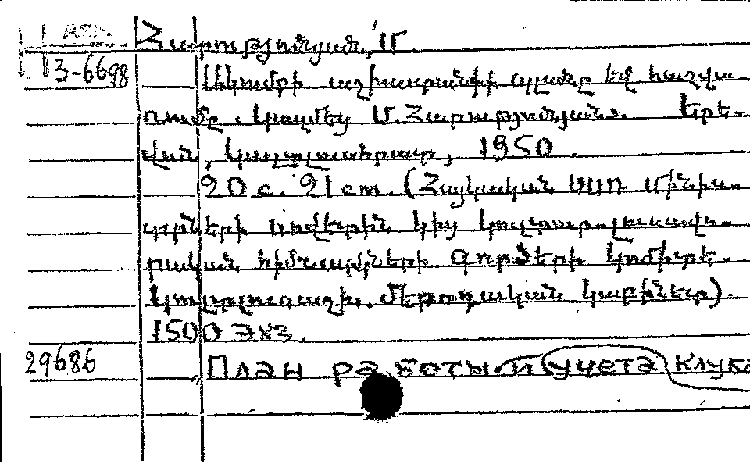 Հարությունյան, Մ.
3-6698
Ակումբի աշխատանքի պլանը եվ հաշվա
ռումը. Կազմեց Մ. Հարությունյան. Երե-
վան, Կուլտլուսհրատ, 1950.
20 с. 21 cm. (Հայկական ՍՍՌ Մինիս-
տրների Սովետին կից կուլտուր-լուսավո-
րական հիմնարկների գործերի կոմիտե.
Կուլտլուսաշխ. մեթոդական կաբինետ).
1500 экз.
29686
План работы и учета клуба